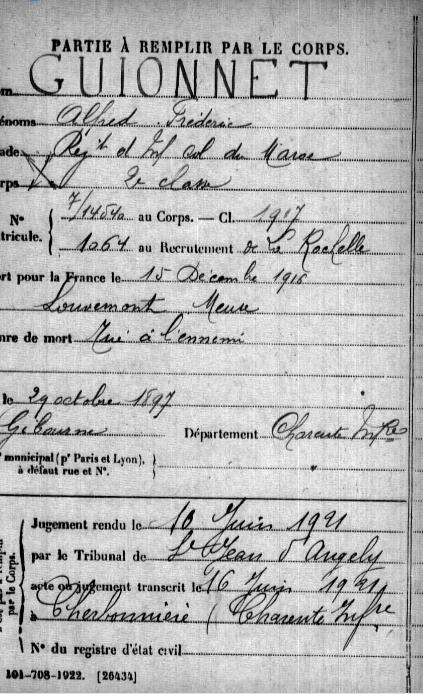 PARTIE À REMPLIR PAR LE CORPS.
om GUIONNET
énoms Alfred Fréderic
ade Regt d'Inf Col du Maroc
rps 2e classe
N° 7/1454a au Corps. — Cl. 1917
tricule. 1064 au Recrutement de La Rochelle
ort pour la France le 15 Décembre 1916
Louvemont Meuse
nre de mort Tué à l'ennemi
le 29 octobre 1897
Gibourne Département Charente Infre
municipal (pr Paris et Lyon),
à défaut rue et N°.
Jugement rendu le 10 Juin 1921
par le Tribunal de St Jean d'Angely
acte ou jugement transcrit le 16 Juin 1921
à Cherbonnière (Charente Infre
N° du registre d'état civil
par le Corps.
101-708-1922. [26434]